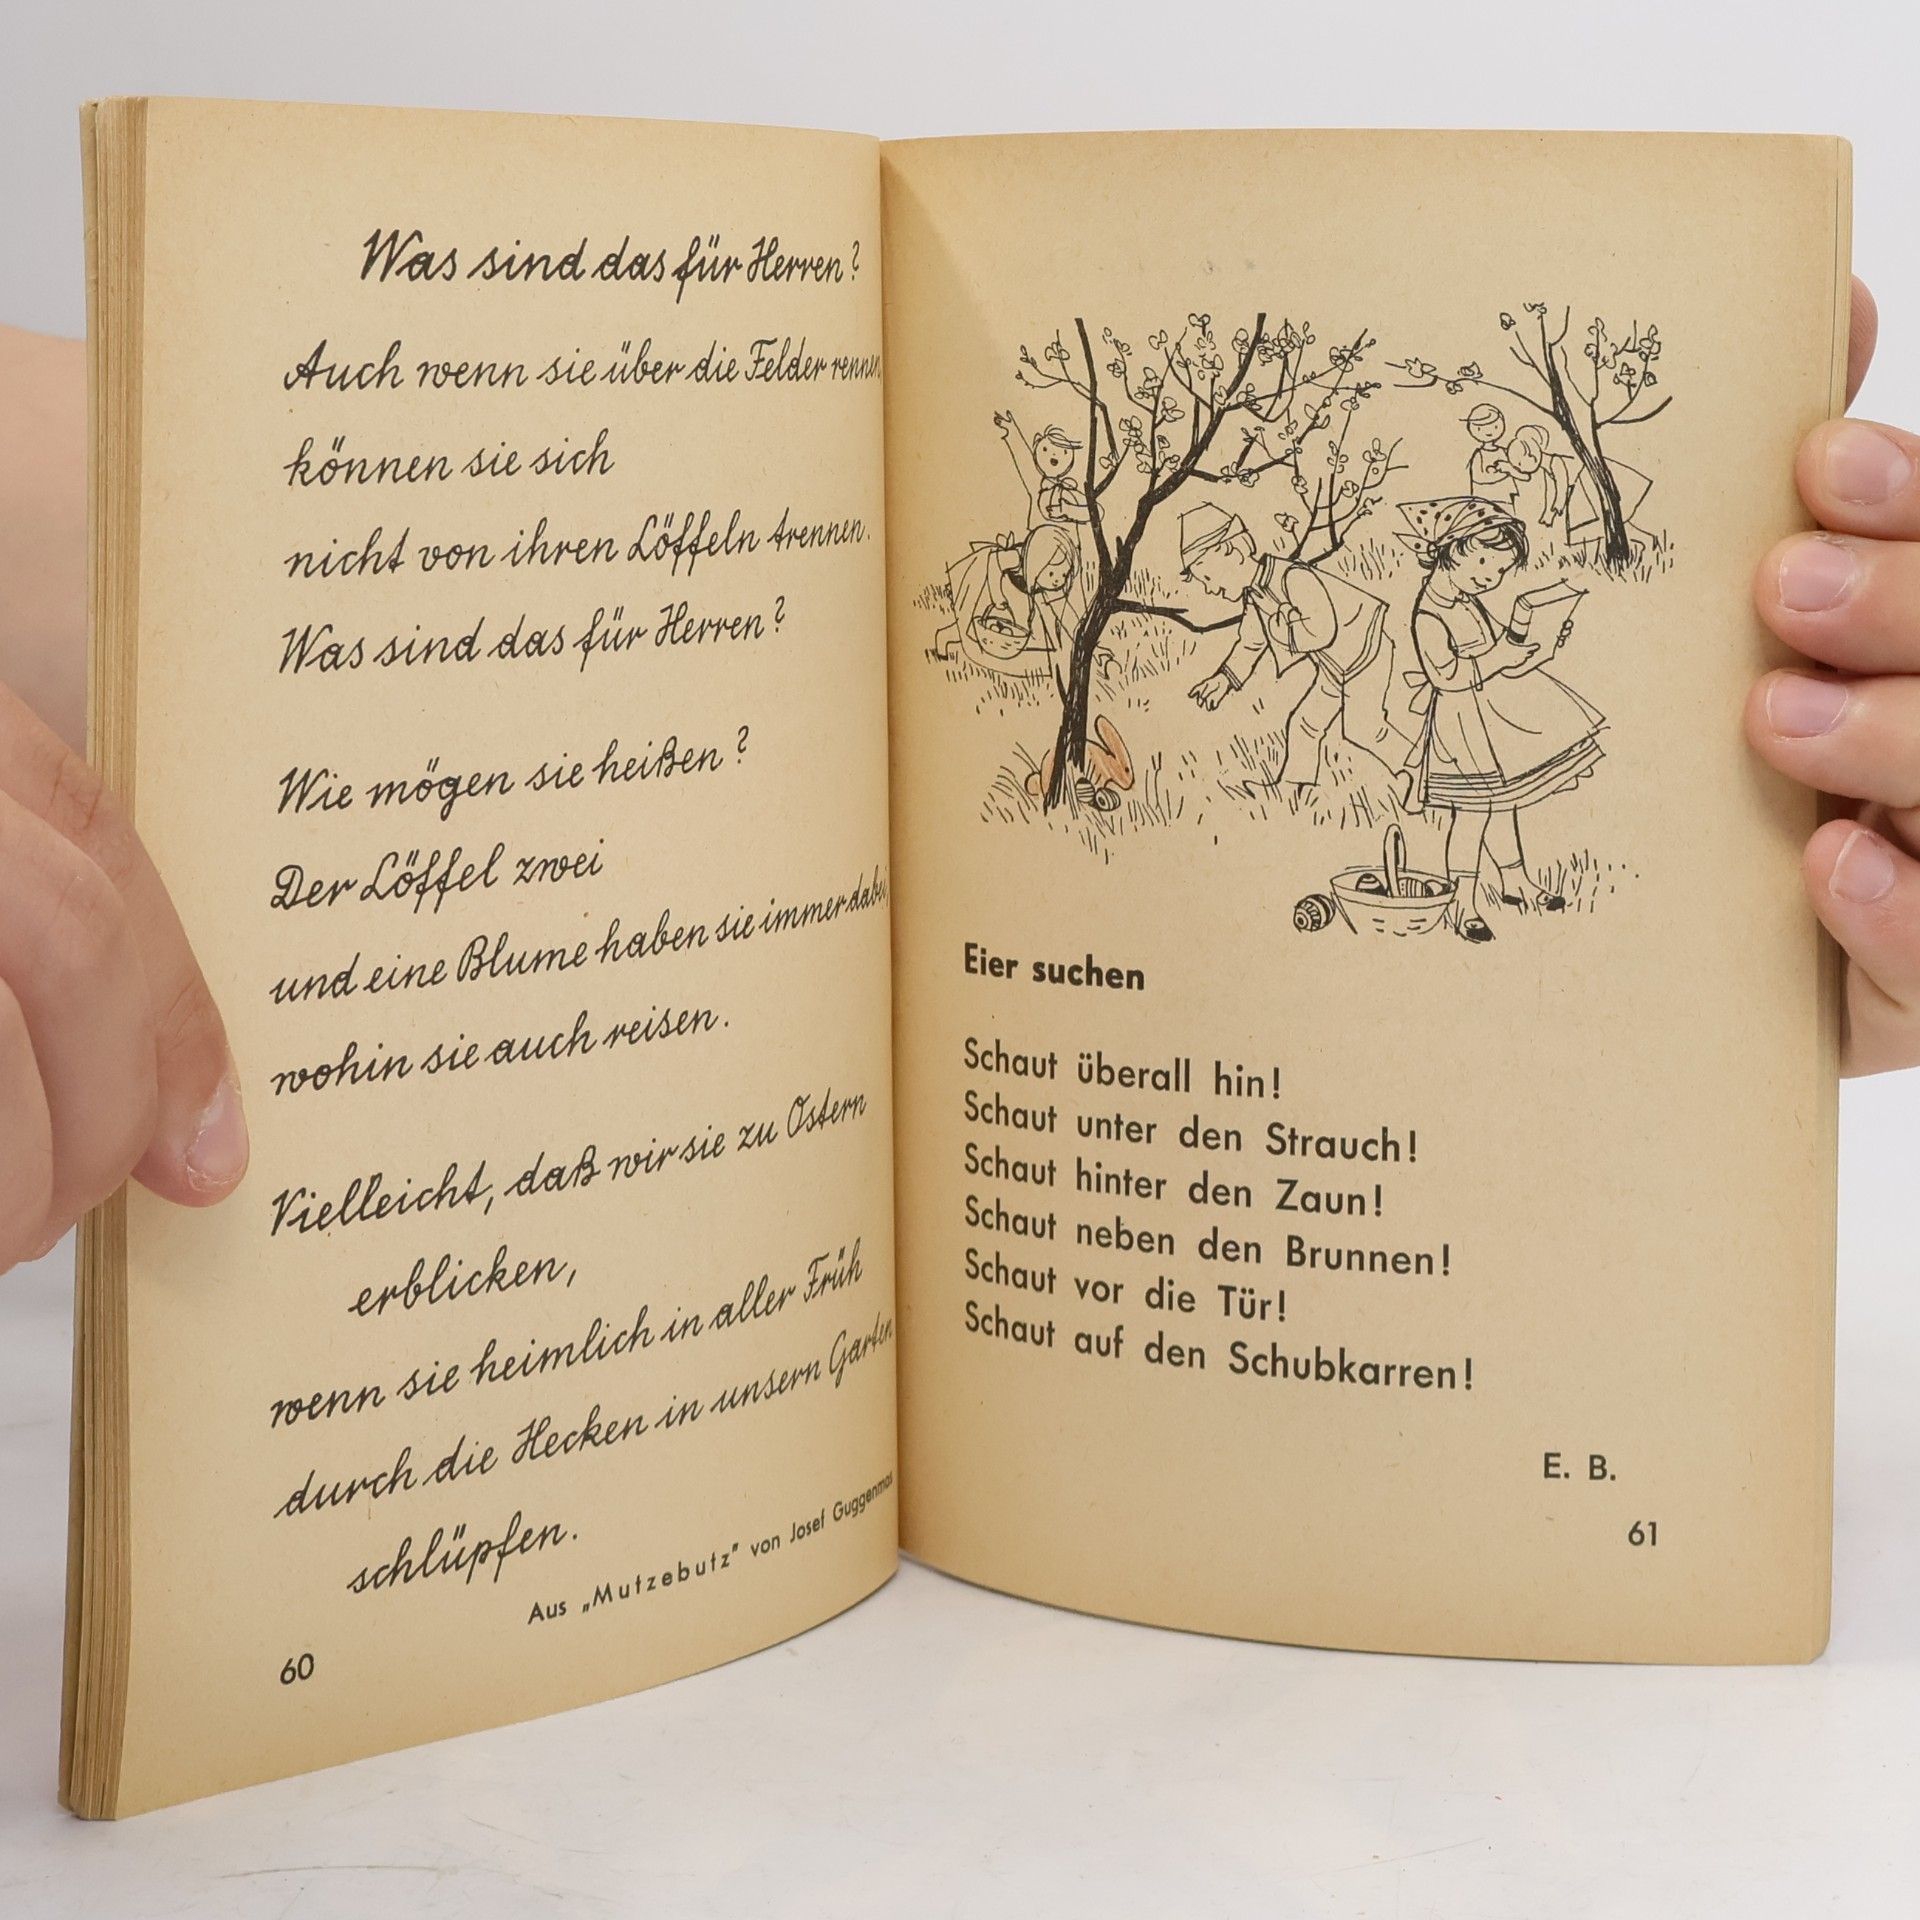 Was sind das für Herren?
Auch wenn sie über die Felder rennen,
können sie sich
nicht von ihren Löffeln trennen.
Was sind das für Herren?
Wie mögen sie heißen?
Der Löffel zwei
und eine Blume haben sie immer dabei,
wohin sie auch reisen.
Vielleicht, daß wir sie zu Ostern
erblicken,
wenn sie heimlich in aller Früh
durch die Hecken in unsern Garten
schlüpfen.
Aus „Mutzebutz" von Josef Guggenmos
60
Eier suchen
Schaut überall hin!
Schaut unter den Strauch!
Schaut hinter den Zaun!
Schaut neben den Brunnen!
Schaut vor die Tür!
Schaut auf den Schubkarren!
E. B.
61